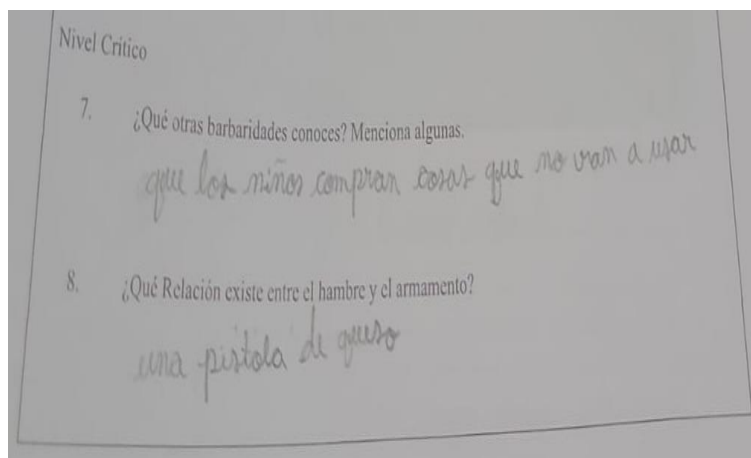 Nivel Crítico
7. ¿Qué otras barbaridades conoces? Menciona algunas.
que los niños compran cosas que no van a usar
8. ¿Qué Relación existe entre el hambre y el armamento?
una pistola de queso